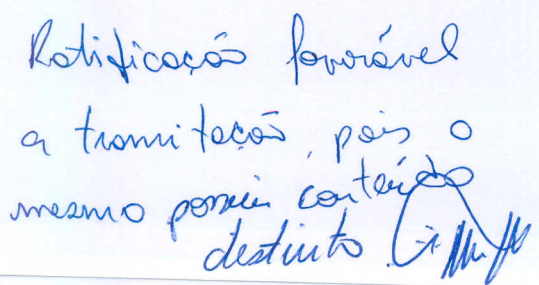 Ratificação favorável
a tramitação, pois o
mesmo possui conteúdo
destinto